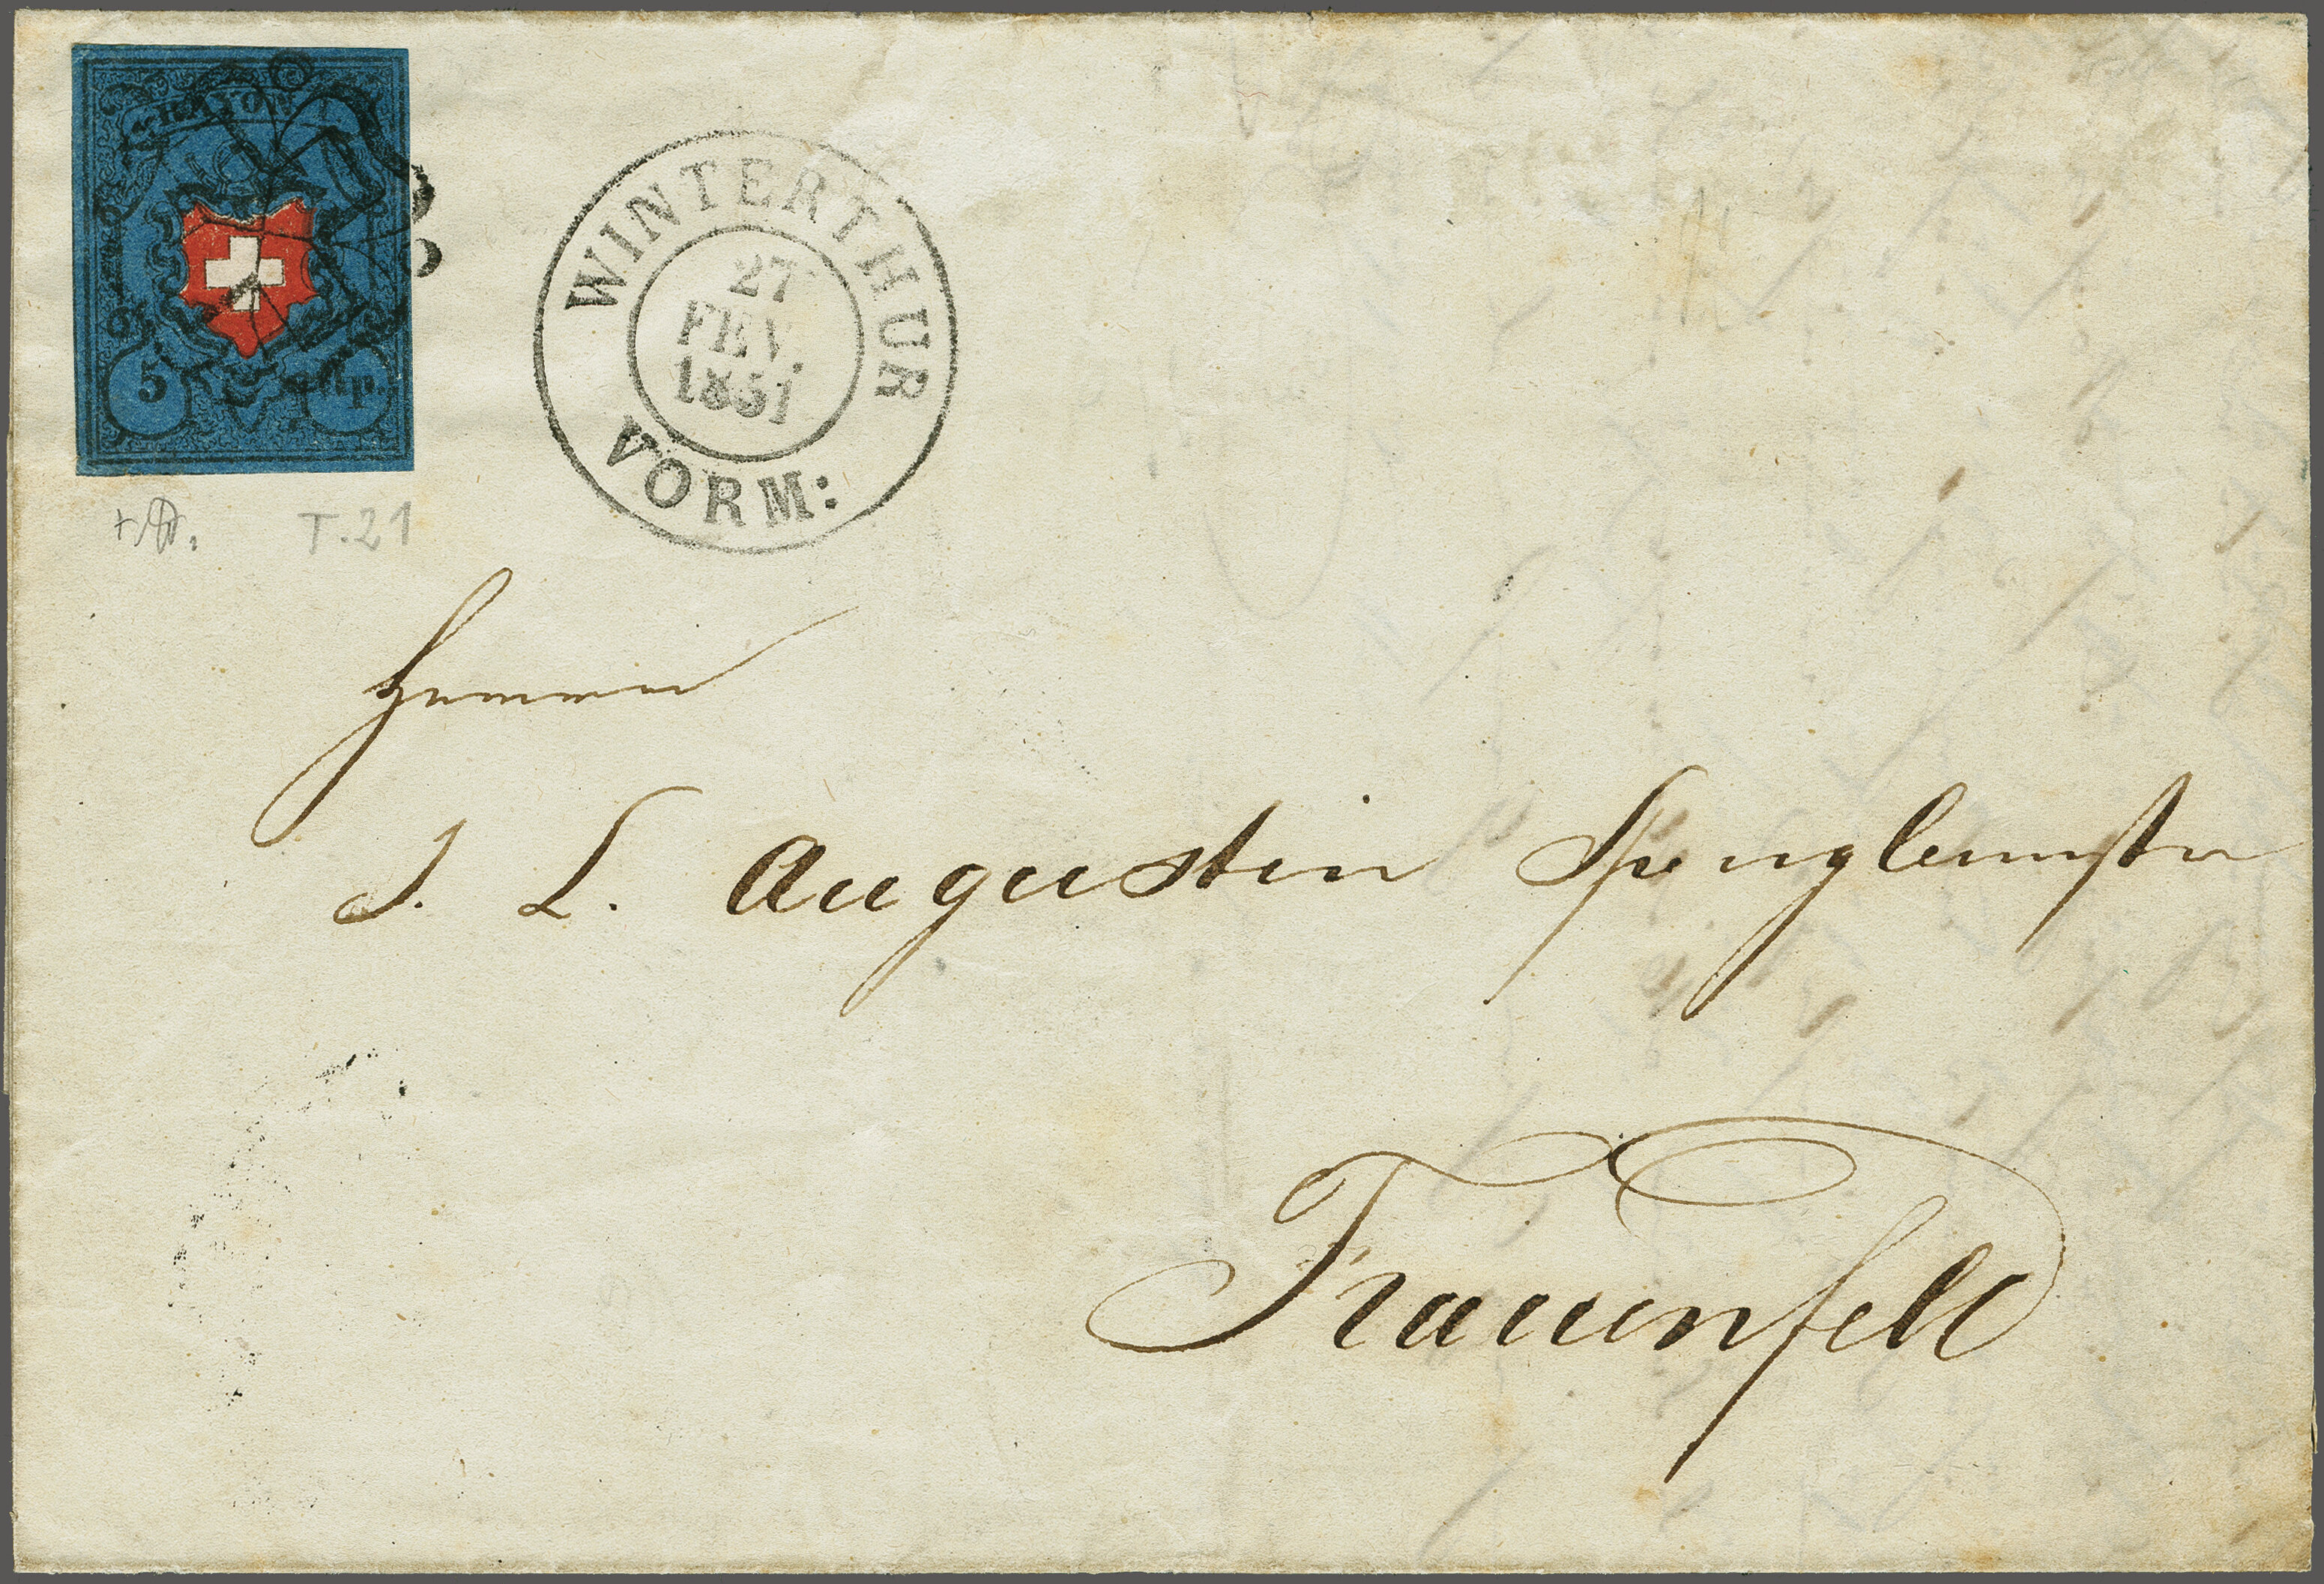 RAYON I
5 Rp.
WINTERTHUR
27
FEV.
1851
VORM:
T.21
Herrn
J. L. Augustin Spenglermstr
Frauenfeld